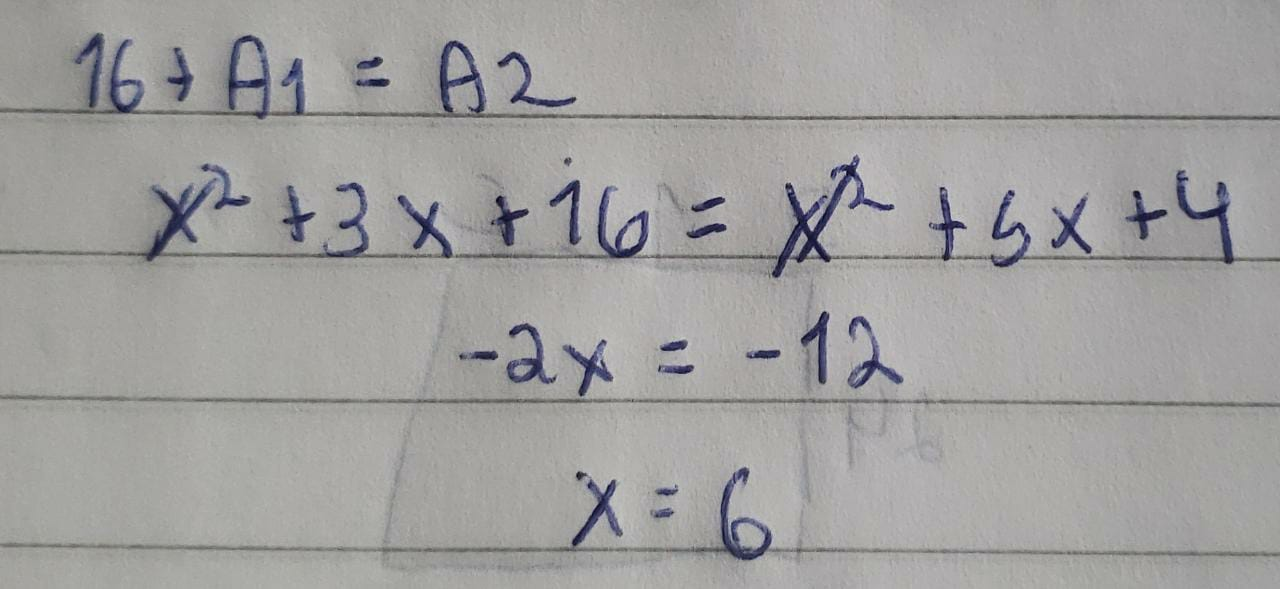 16 + A1 = A2
x² + 3x + 16 = x² + 5x + 4
-2x = -12
x = 6